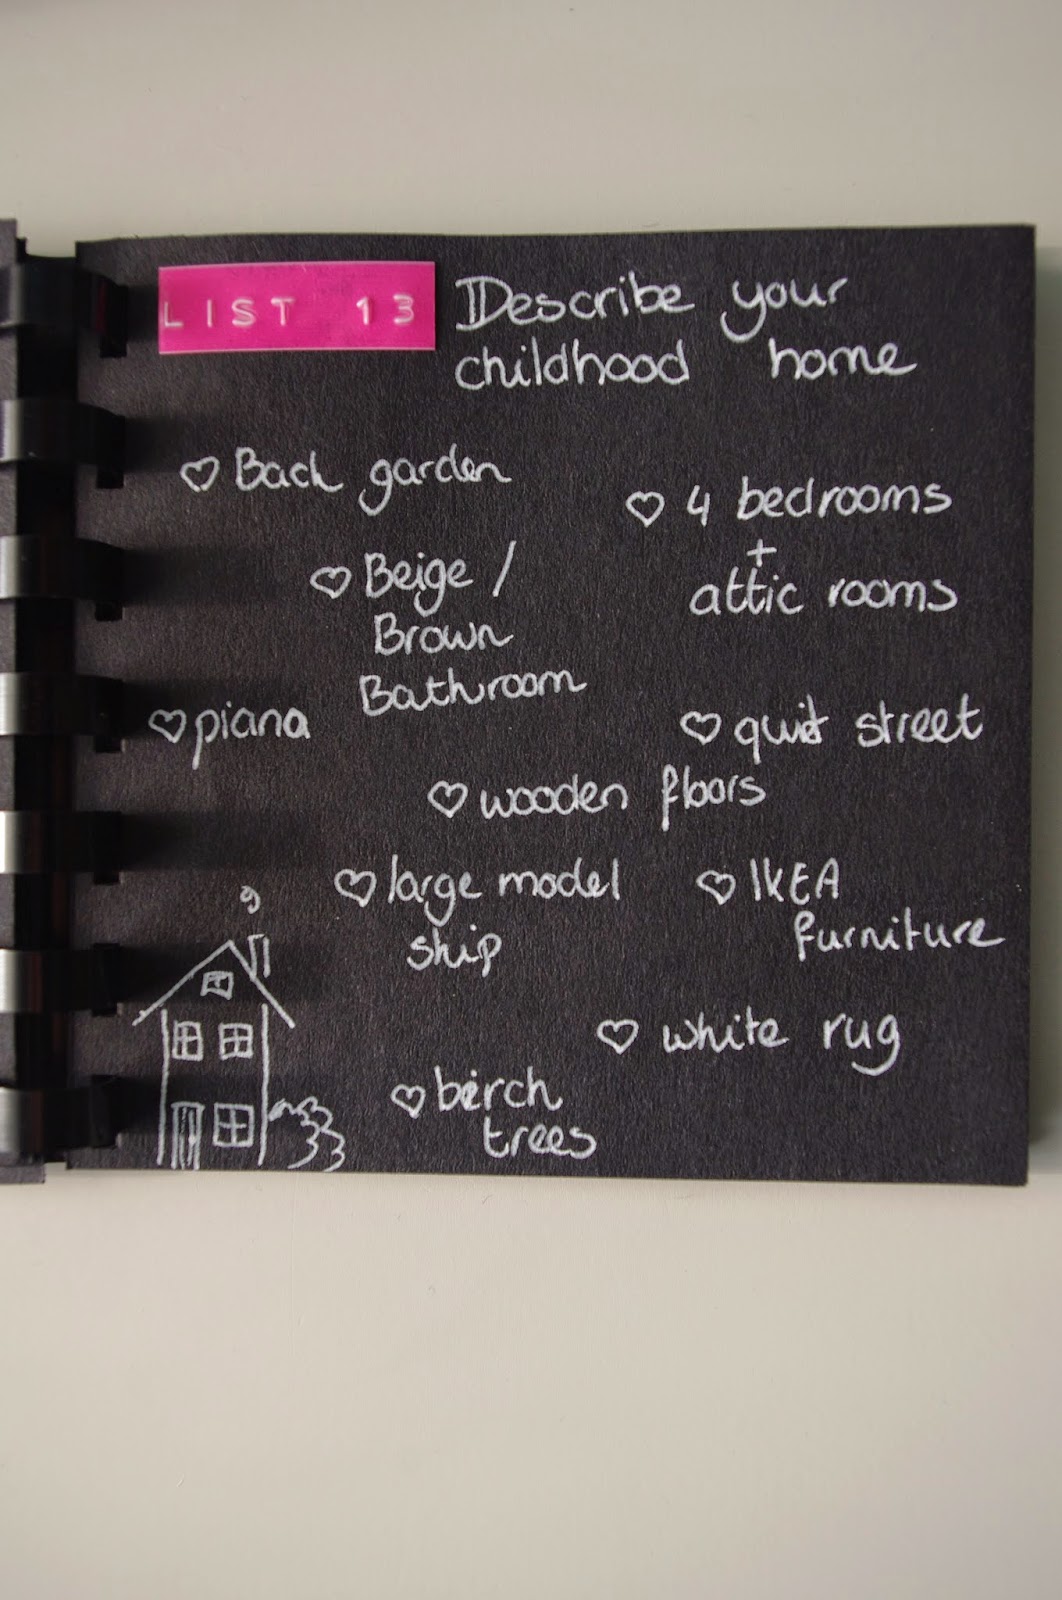 LIST 13
Describe your
childhood home
♡ Back garden
♡ 4 bedrooms
+
attic rooms
♡ Beige /
Brown
Bathroom
♡ piana
♡ quit street
♡ wooden floors
♡ large model
ship
♡ IKEA
furniture
♡ white rug
♡ birch
trees